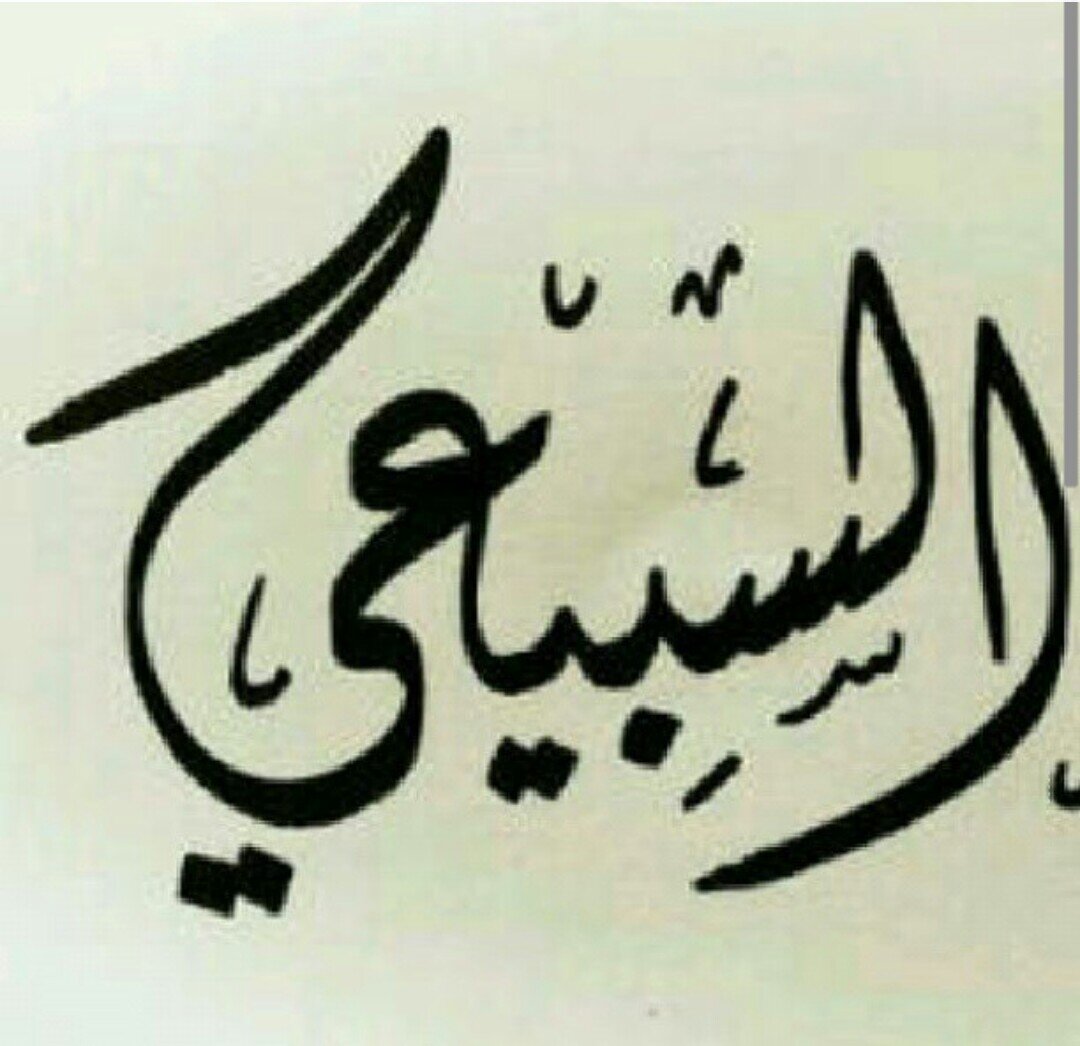 السبيعي